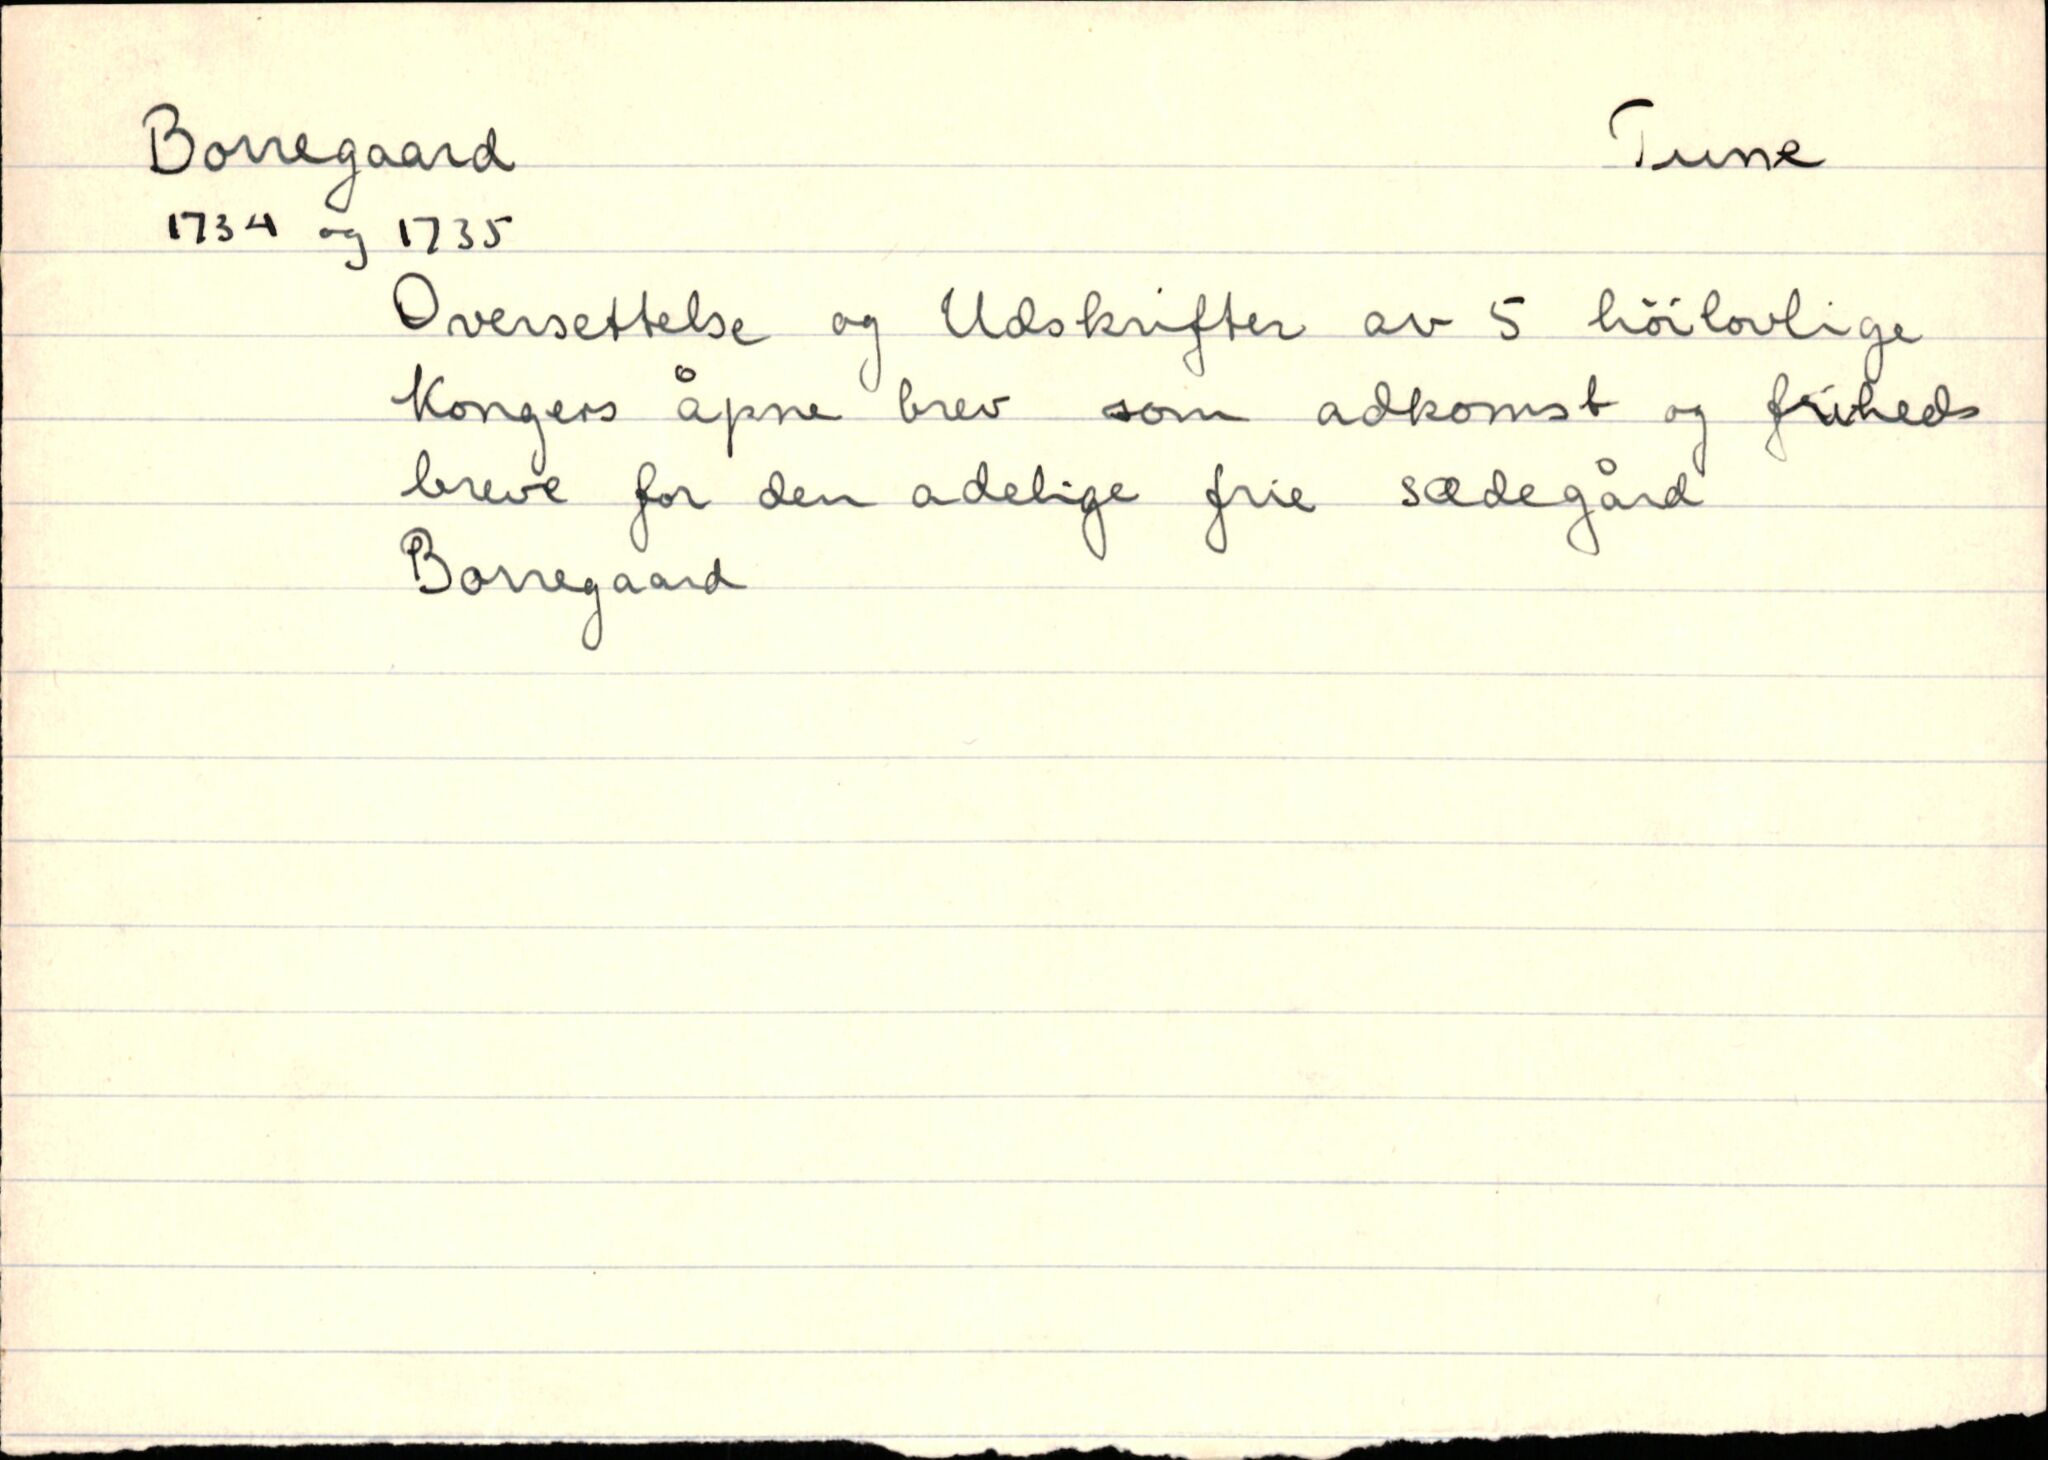 Borregaard Tune
1734 og 1735
Oversettelse og Udskrifter av 5 höilovlige
Kongers åpne brev som adkomst og friheds
breve for den adelige frie sædegård
Borregaard